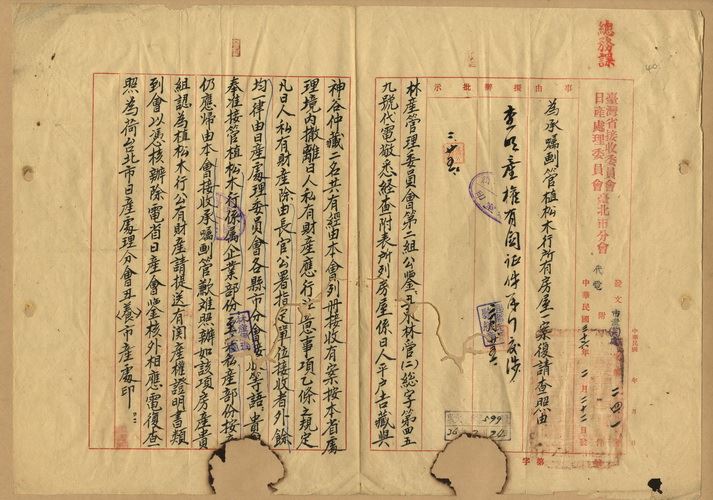 總務課
40
臺灣省接收委員會
日產處理委員會
臺北市分會
代電
事由
擬辦
批示
中華民國 年 月 日
發文
附
件
號
二四一
中華民國三十六年二月二十二日發
字
第
為承囑劃管植松木行所有房屋一案復請查照由
查明產權有關証件再行交涉
林產管理委員會第二組公鑒丑 林管(二)總字第四五
九號代電敬悉經查附表所列房屋係日人平戶吉藏與
神谷仲藏二名共有經由本會列冊接收有案按本省處
理境內撤離日人私有財產應行注意事項乙條之規定
凡日人私有財產除由長官公署指定單位接收者外餘
均一律由日產處理委員會各縣市分會接收等語貴
奉准接管植松木行係属企業部份至私名產部份按
仍應帰由本會接收承囑劃管歉難照辦如該項房產貴
組認為植松木行公有財產請提送有関產權證明書類
到會以憑核辦除電省日產會鑒核外相應電復查
照為荷台北市日產處理分會丑(養)市產處印
599
36 2 24